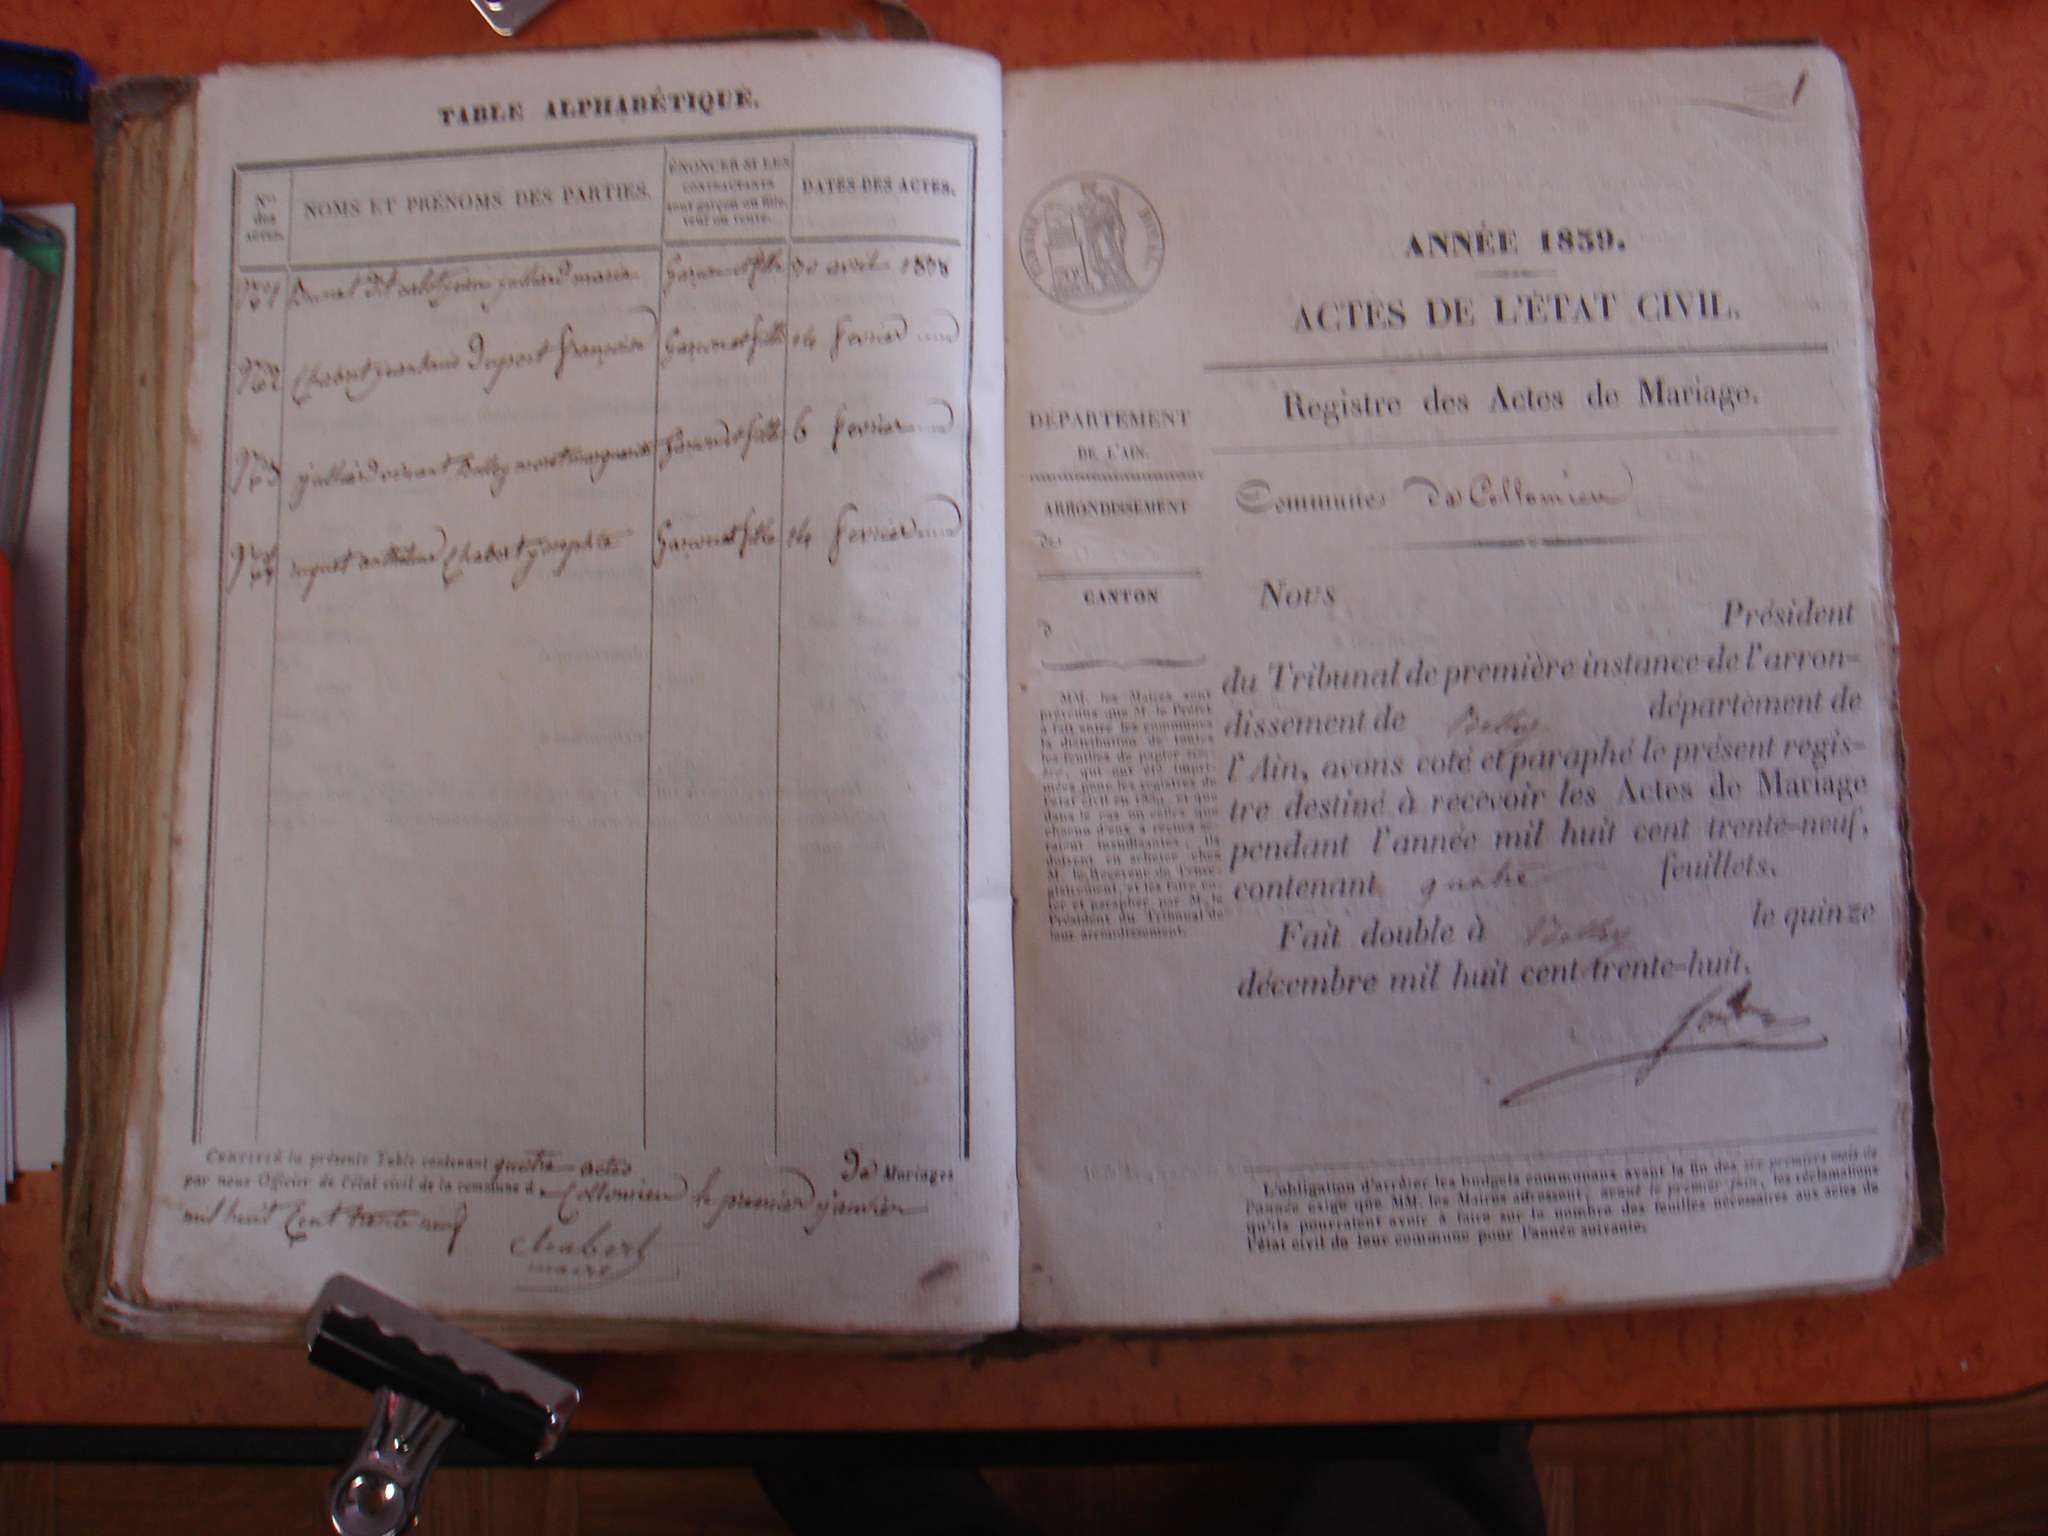 TABLE ALPHABÉTIQUE.
Nos des ACTES.
NOMS ET PRÉNOMS DES PARTIES.
ÉNONCER SI LES
CONTRACTANTS
sont garçon ou fille,
veuf ou veuve.
DATES DES ACTES.
No 1 dit marie Garçon et fille 30 avril 1838
No 2 Chabert Dupont françoise Garçon et fille 14 fevrier
No 3 julliard vincent Garçon et fille 6 fevrier
No 4 anthelme Chabert josephte Garçon et fille 14 fevrier
CERTIFIÉ la présente Table contenant quatre actes de Mariages
par nous Officier de l'état civil de la commune d Collomieu le premier janvier
mil huit Cent trente neuf
Chabert
maire
1
ANNÉE 1839.
ACTES DE L'ÉTAT CIVIL.
Registre des Actes de Mariage.
Commune de Collomieu
DÉPARTEMENT
DE L'AIN.
ARRONDISSEMENT
de
CANTON
d
MM. les Maires sont
prévenus que M. le Préfet
a fait entre les communes
la distribution de toutes
les feuilles de papier timbré,
qui ont été imprimées
pour les registres de
l'état civil en 1839, et que
dans le cas où celles que
chacun d'eux a reçues seraient
insuffisantes, ils
doivent en acheter chez
M. le Receveur de l'enregistrement,
et les faire coter
et parapher par M. le
Président du Tribunal de
leur arrondissement.
Nous
Président
du Tribunal de première instance de l'arron-
dissement de Belley département de
l'Ain, avons coté et paraphé le présent regis-
tre destiné à recevoir les Actes de Mariage
pendant l'année mil huit cent trente-neuf,
contenant quatre feuillets.
Fait double à Belley le quinze
décembre mil huit cent trente-huit.
L'obligation d'arrêter les budgets communaux avant la fin des six premiers mois de
l'année exige que MM. les Maires adressent, avant le premier juin, les réclamations
qu'ils pourraient avoir à faire sur le nombre des feuilles nécessaires aux actes de
l'état civil de leur commune pour l'année suivante.